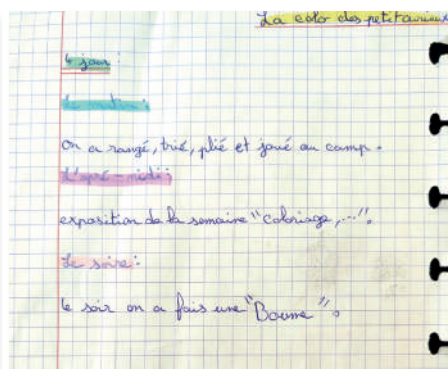 La colo des petit curieux
4 jour :
Le matin :
On a rangé, trié, plié et joué au camp.
L'apré-midi :
exposition de la semaine "coloriage, ...".
Le soire :
le soir on a fais une "Boume".